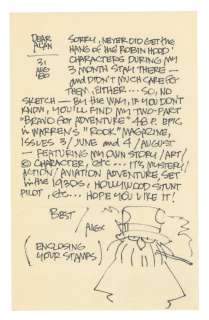 DEAR ALAN
31 AUG '80
SORRY, NEVER DID GET THE
HANG OF THE 'ROBIN HOOD'
CHARACTERS DURING MY
3 MONTH STAY THERE —
AND DIDN'T MUCH CARE FOR
THEM, EITHER... SO, NO
SKETCH — BY THE WAY, IF YOU DON'T
KNOW, YOU'LL FIND MY TWO-PART
"BRAVO FOR ADVENTURE" 48 P. EPIC
IN WARREN'S "ROOK" MAGAZINE,
ISSUES 3/JUNE AND 4/AUGUST
— FEATURING MY OWN STORY/ART/
© CHARACTER, ETC... IT'S MYSTERY/
ACTION/AVIATION ADVENTURE, SET
IN THE 1930S, HOLLYWOOD STUNT
PILOT, ETC... HOPE YOU LIKE IT!
BEST/
ALEX
(ENCLOSING
YOUR STAMPS)